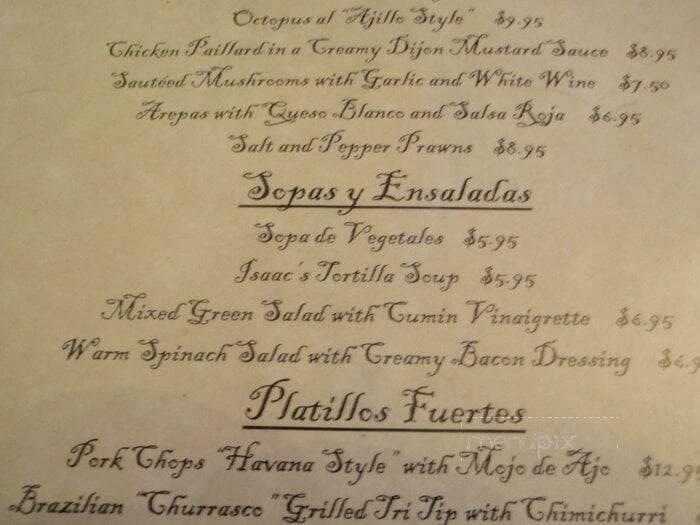 Octopus al "Ajillo Style" $9.95
Chicken Paillard in a Creamy Dijon Mustard Sauce $8.95
Sautéed Mushrooms with Garlic and White Wine $7.50
Arepas with Queso Blanco and Salsa Roja $6.95
Salt and Pepper Prawns $8.95
Sopas y Ensaladas
Sopa de Vegetales $5.95
Isaac's Tortilla Soup $5.95
Mixed Green Salad with Cumin Vinaigrette $6.95
Warm Spinach Salad with Creamy Bacon Dressing $6.9
Platillos Fuertes
menupix
Pork Chops "Havana Style" with Mojo de Ajo $12.95
Brazilian "Churrasco" Grilled Tri Tip with Chimichurri